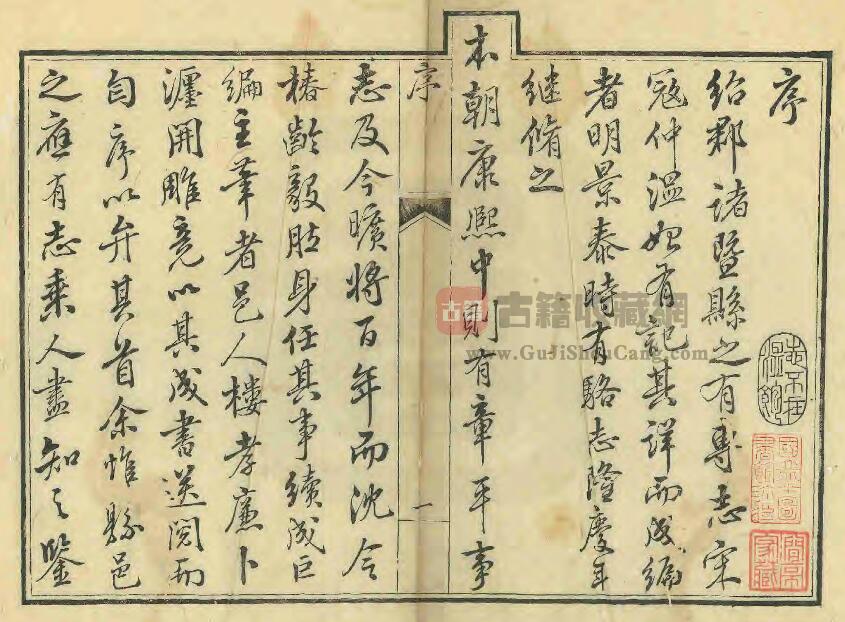 序
紹郡諸暨縣之有專志宋
寇仲溫始有記其詳而成編
者明景泰時有駱志隆慶年
继脩之
本朝康熙中則有章平事
序
一
志及今曠將百年而沈令
椿齡毅肰身任其事續成巨
編主筆者邑人樓孝廉卜
瀍開雕竟以其成書送閱而
匄序以弁其首余惟縣邑
之應有志乘人盡知之鑒
古籍
古籍收藏網
www.GuJiShouCang.com